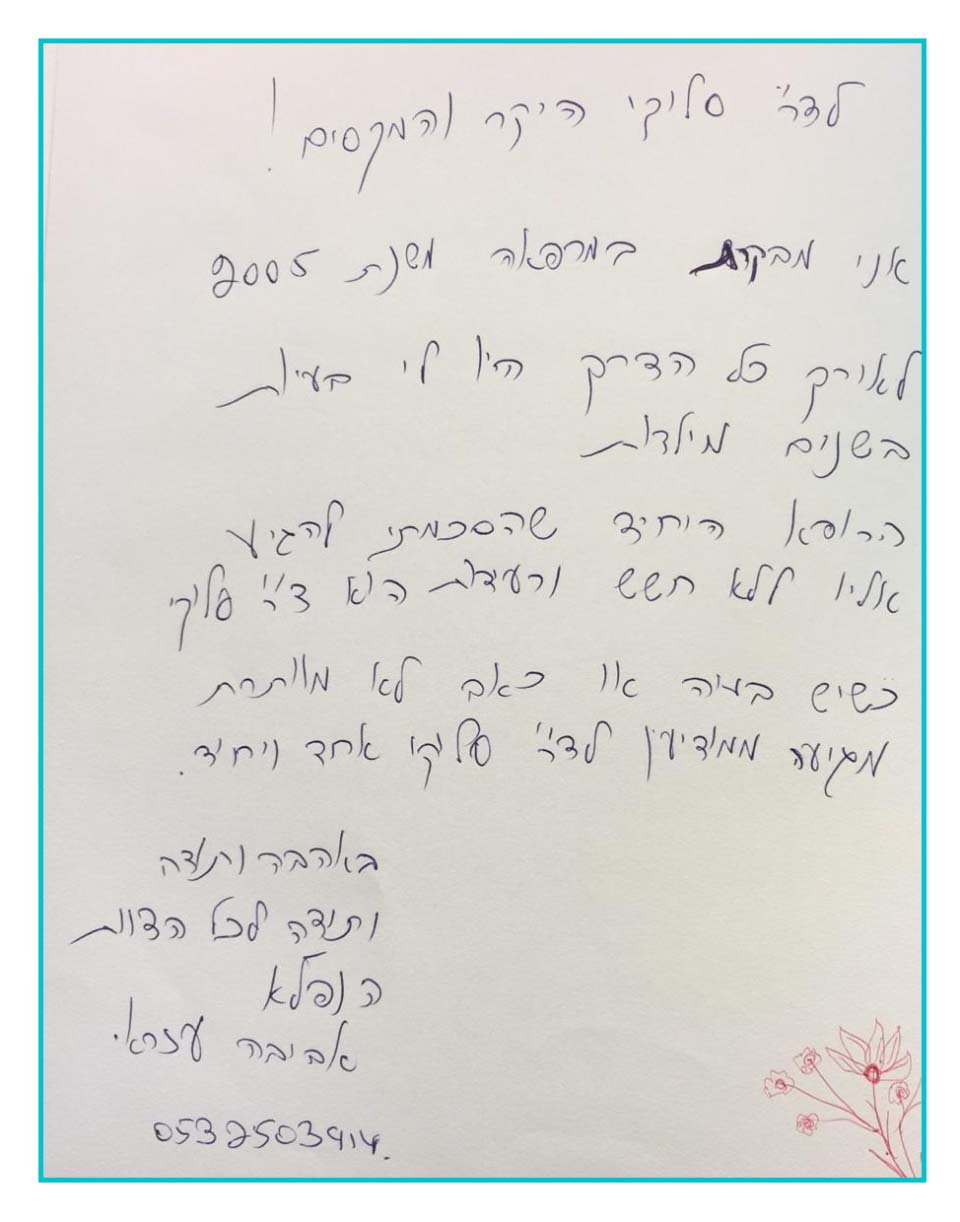 לדר' סלוקי היקר והמקסים!
אני מבקרת במרפאה משנת 2005
לאורך כל הדרך היו לי בעיות
בשנים מילדות
הרופא היחיד שהסכמתי להגיע
אליו ללא חשש ורעדות הוא ד"ר סלוקי
כשיש בעיה או כאב לא מוותרת
מגיעה ממודיעין לדר' סלוקי אחד ויחיד.
באהבה ותודה
ותודה לכל הצוות
הנפלא
אביבה עזרא.
0532503414.